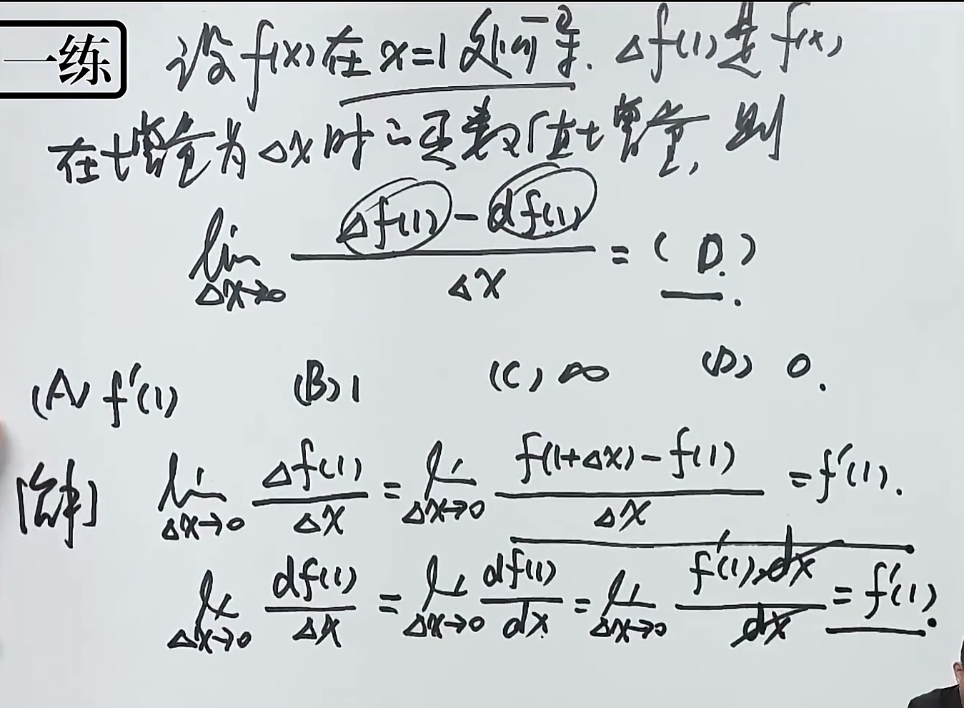 一练
设f(x)在x=1处可导. Δf(1)是f(x)
在增量为Δx时的函数值增量, 则
lim Δx→0 (Δf(1) - df(1))/Δx = ( D. ).
(A) f'(1) (B) 1 (C) ∞ (D) 0.
[解] lim Δx→0 Δf(1)/Δx = lim Δx→0 (f(1+Δx) - f(1))/Δx = f'(1).
lim Δx→0 df(1)/Δx = lim Δx→0 df(1)/dx = lim Δx→0 f'(1)·dx/dx = f'(1).